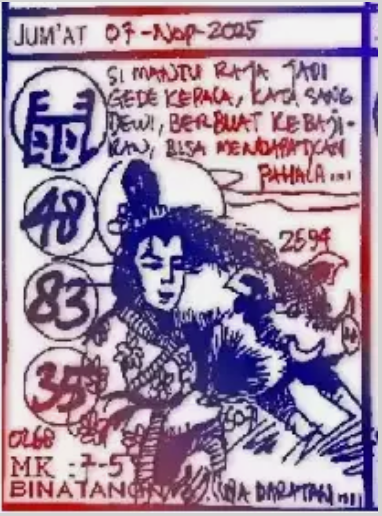 JUM'AT 07-Nop-2025
SI MANTU RAJA JADI
GEDE KEPALA, KATA SANG
DEWI, BERBUAT KEBAJI-
KAN, BISA MENDAPATKAN
PAHALA...
48
2594
83
35
0268
MK : 7-5
BINATANG DARATAN...